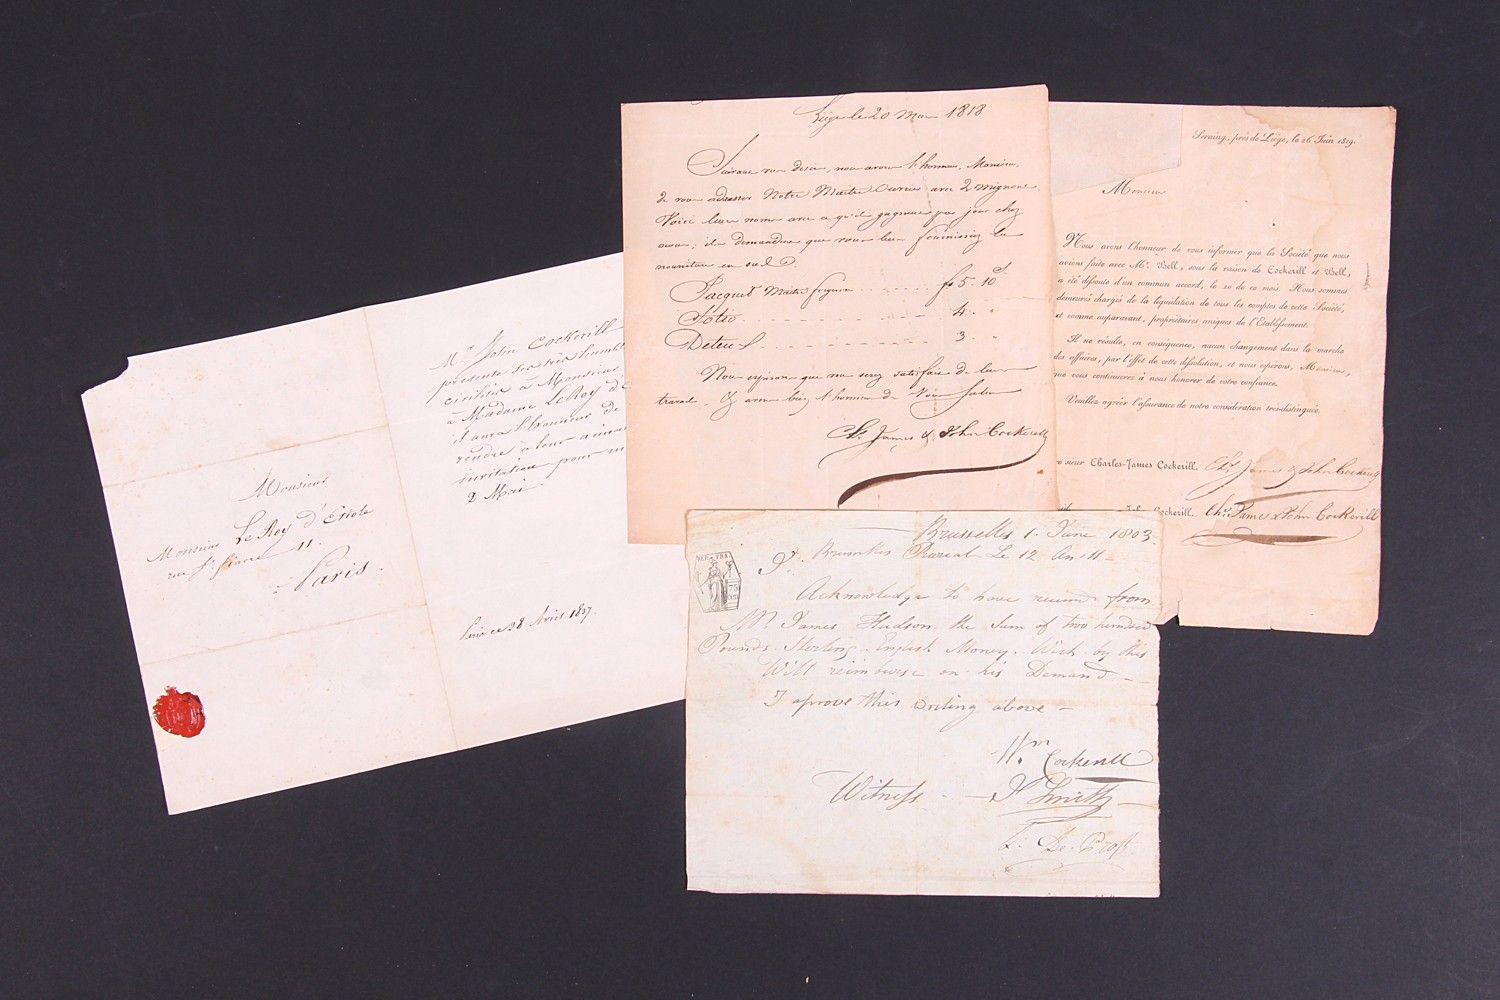 Monsieur
Monsieur Le Roy d'Etiole
rue St.
11.
à Paris.
Mr John Cockerill
présente ses très humbles
civilités à Monsieur
& Madame Le Roy d'E
il aura l'honneur de
rendre à leur
invitation pour
2 Mai.
Paris ce 28 Avril 1837.
Liége le 20 Mars 1818
Suivant vos desir, nous avons l'honneur, Monsieur,
de vous adresser Notre Maitre Ouvrier avec 2
Voici leurs noms avec ce qu'ils gagnent par jour chez
nous; ils demandent que vous leur fournissiez la
nourriture en sus.
Jacquet Maitre 5. 10
4. "
3. "
Nous espérons que vous serez satisfait de leur
travail. Nous avons bien l'honneur de Vous Saluer
Chs. James & John Cockerill
Seraing, près de Liége, le 26 Juin 1819.
Monsieur
Nous avons l'honneur de vous informer que la Société que nous
avions faite avec Mr. Bell, sous la raison de Cockerill et Bell,
a été dissoute d'un commun accord, le 20 de ce mois. Nous sommes
demeurés chargés de la liquidation de tous les comptes de cette Société,
et comme auparavant, propriétaires uniques de l'Etablissement.
Il ne résulte, en conséquence, aucun changement dans la marche
des affaires, par l'effet de cette dissolution, et nous espérons, Monsieur,
que vous continuerez à nous honorer de votre confiance.
Veuillez agréer l'assurance de notre considération très-distinguée.
sieur Charles-James Cockerill. Chs. James & John Cockerill
John Cockerill. Chs. James & John Cockerill
Brusselles 1. June 1803
Prareal Le 12 An 11
Acknowledge to have received from
Mr. James Hudson the Sum of two hundred
Pounds Sterling English Money. Wich by this
Will reimburse on his Demand
I aprove this writing above
Wm Cockerill
Witness J Smith